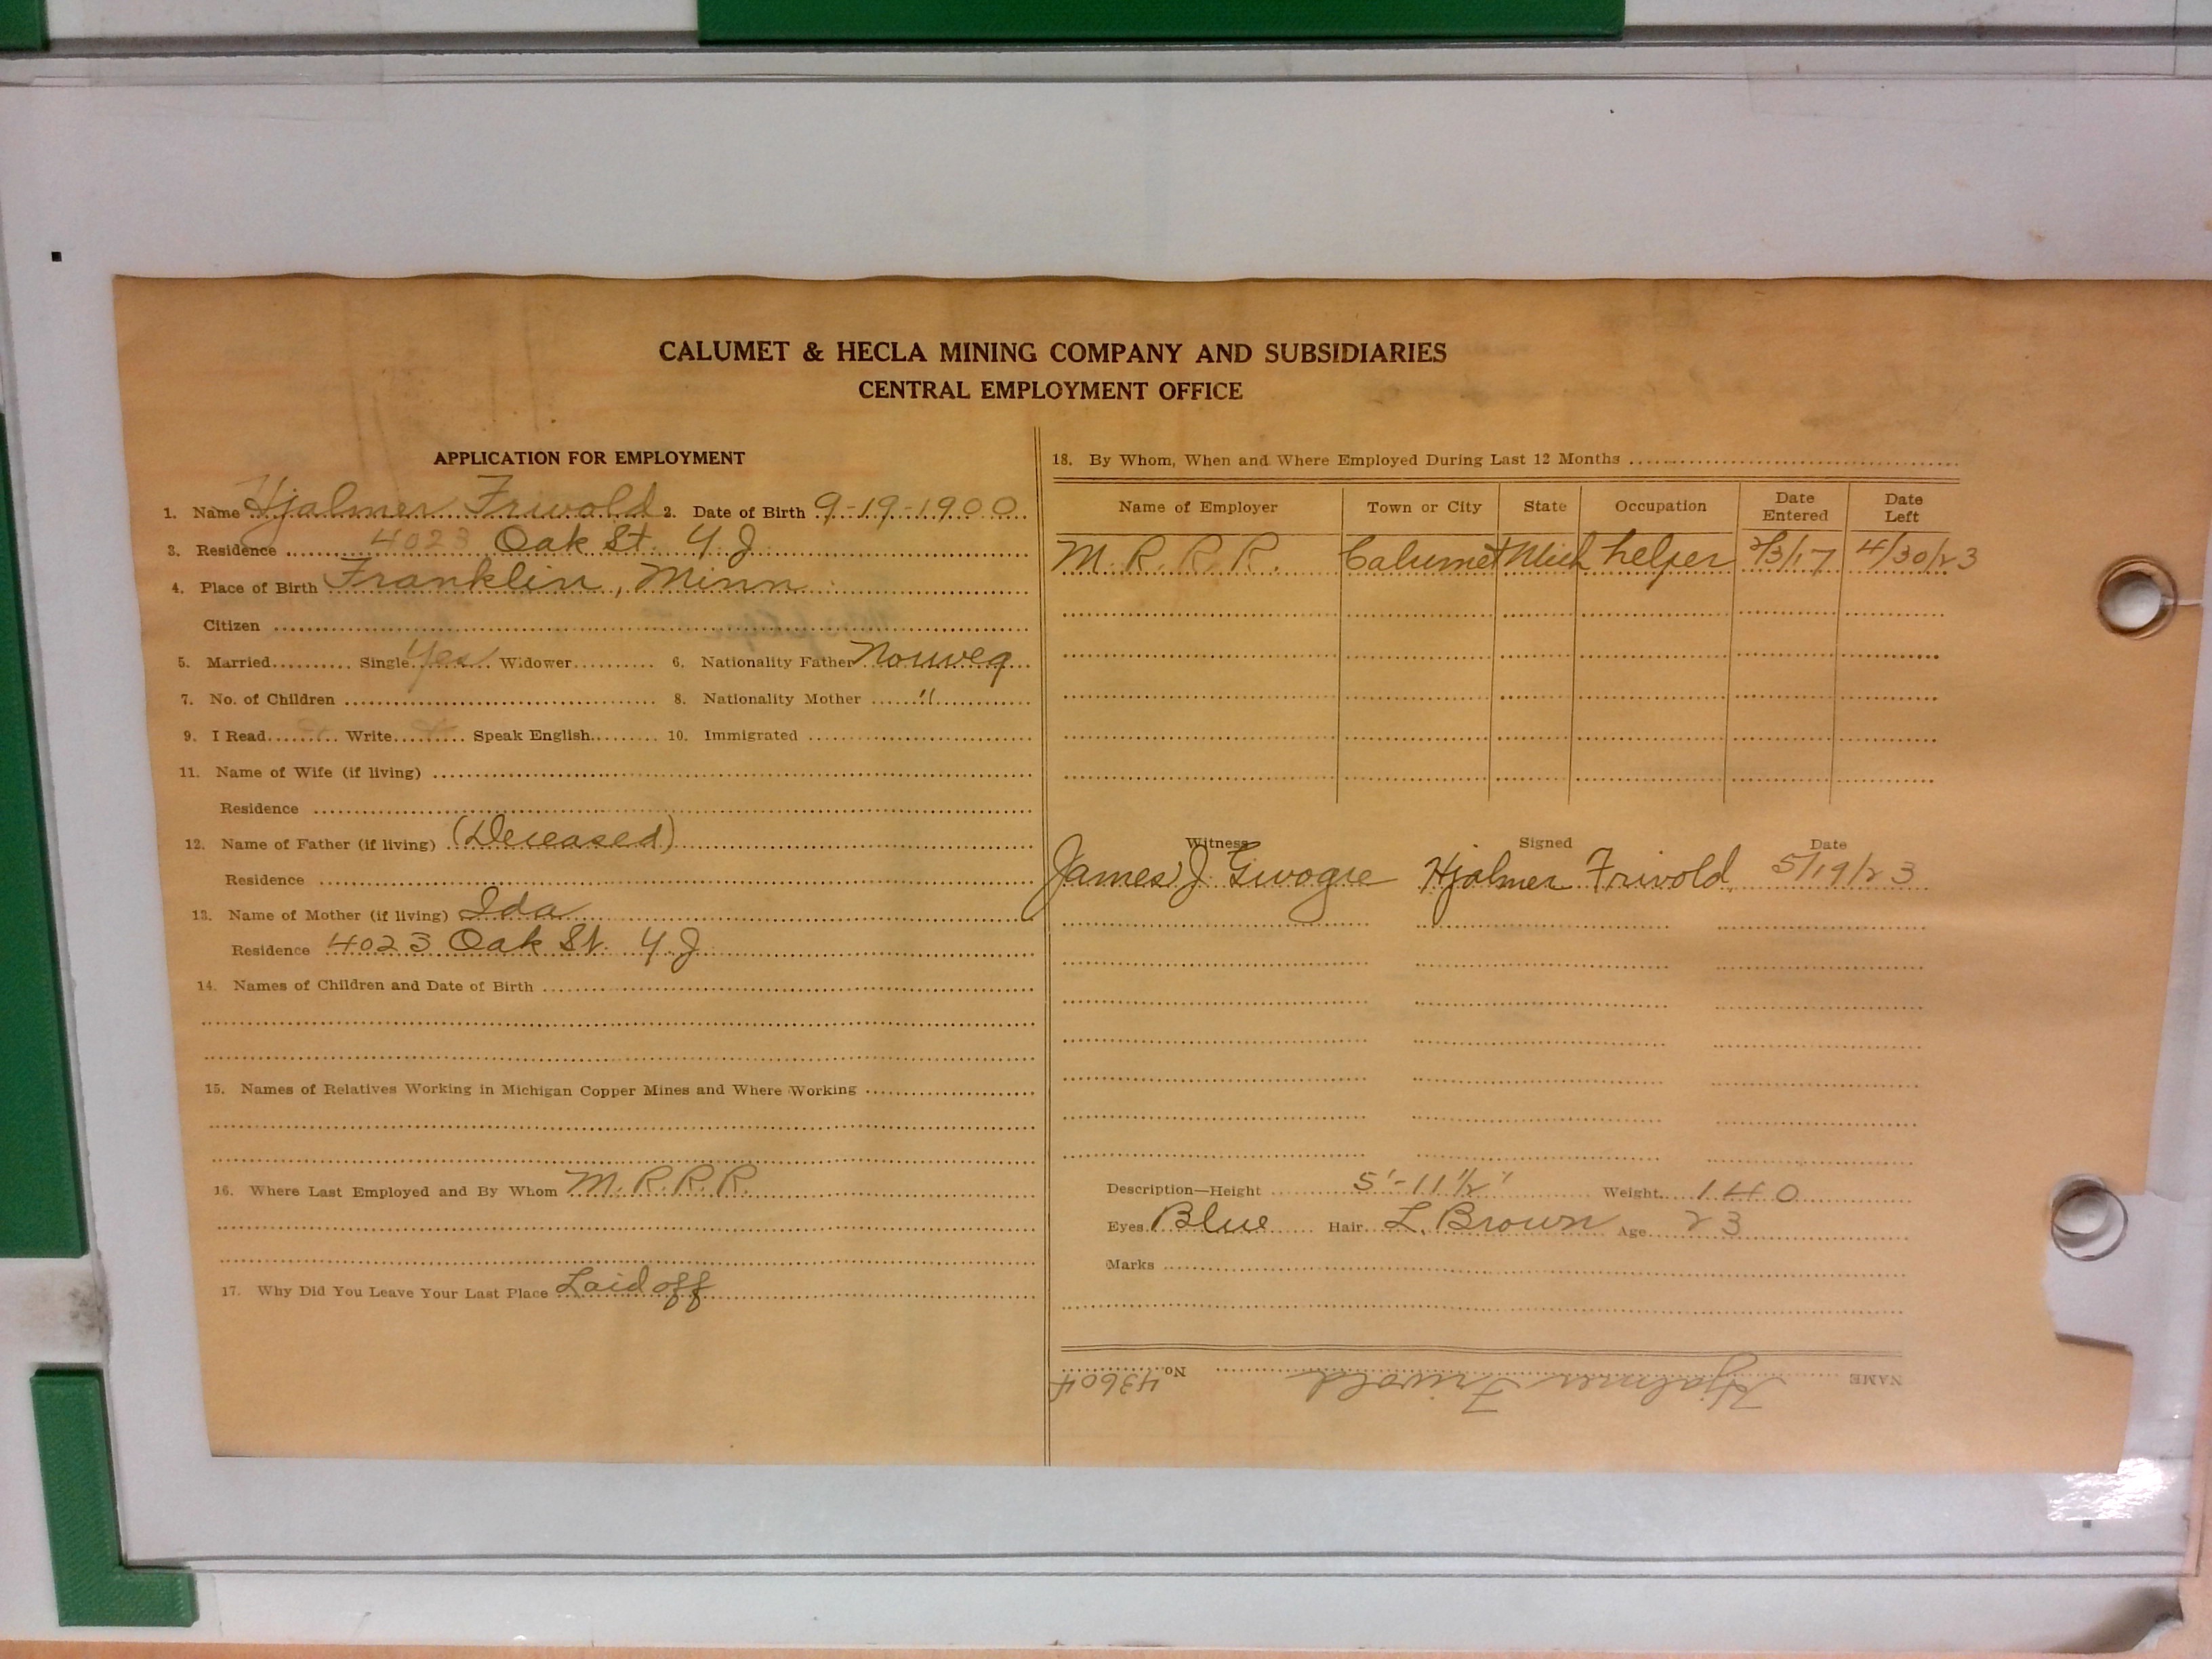 CALUMET & HECLA MINING COMPANY AND SUBSIDIARIES
CENTRAL EMPLOYMENT OFFICE
APPLICATION FOR EMPLOYMENT
1. Name Hjalmer Frivold 2. Date of Birth 9-19-1900
3. Residence 4023 Oak St. Y.J.
4. Place of Birth Franklin, Minn
Citizen
5. Married Single Yes Widower 6. Nationality Father Norweg
7. No. of Children 8. Nationality Mother "
9. I Read Write Speak English 10. Immigrated
11. Name of Wife (if living)
Residence
12. Name of Father (if living) (Deceased)
Residence
13. Name of Mother (if living) Ida
Residence 4023 Oak St. Y.J.
14. Names of Children and Date of Birth
15. Names of Relatives Working in Michigan Copper Mines and Where Working
16. Where Last Employed and By Whom M.R.R.R.
17. Why Did You Leave Your Last Place Laid off
18. By Whom, When and Where Employed During Last 12 Months
Name of Employer Town or City State Occupation Date Entered Date Left
M.R.R.R. Calumet Mich helper 4/30/23
Witness Signed Date
James J. Hjalmer Frivold 5/19/23
Description—Height 5'-11 1/2" Weight 140
Eyes Blue Hair L. Brown Age 23
Marks
NAME Hjalmer Frivold No. 43604